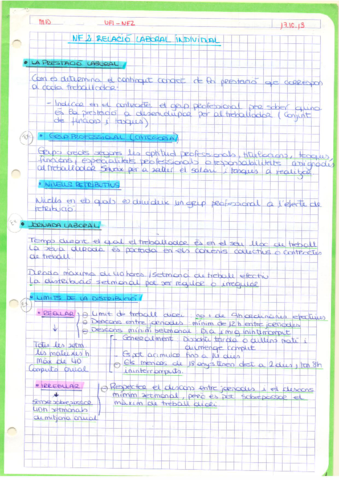 M10 UF1 - NF2 17.10.19
NF 2 RELACIÓ LABORAL INDIVIDUAL
* LA PRESTACIÓ LABORAL
Com es determina el contingut concret de la prestació que correspon
a cada treballador?
- Indicar en el contracte el grup professional per saber quina
és la prestació a desenvolupar per al treballador. (Conjunt
de funcions i tasques)
* GRUP PROFESSIONAL (CATEGORIA)
Grup creat segons les aptituds professionals, titulacions, tasques,
funcions, especialitats professionals o responsabilitats assignades
al treballador. Serveix per a saber el salari i tasques a realitzar
* NIVELL RETRIBUTIU
Nivells en els quals es divideix un grup professional a l'efecte de
retribució.
* JORNADA LABORAL
Temps durant el qual el treballador és en el seu lloc de treball
La seva durada és pactada en els convenis col·lectius o contractes
de treball
Durada màxima de 40 hores / setmana de treball efectiu
La distribució setmanal pot ser regular o irregular
* LÍMITS DE LA DISTRIBUCIÓ
* REGULAR
Límit de treball diari: 9h ordinàries efectives
Descans entre jornades: mínim de 12h entre jornades
Descans mínim setmanal: Dia i mig ininterromput
- Generalment: Dissabte tarda o dilluns matí i
diumenge complet
- Es pot acumular fins a 14 dies
- Els menors de 18 anys tenen dret a 2 dies
ininterromputs
40
Còmputo anual
* IRREGULAR
Respectar el descans entre jornades i el descans
mínim setmanal, però es pot sobrepassar el
màxim de treball diari